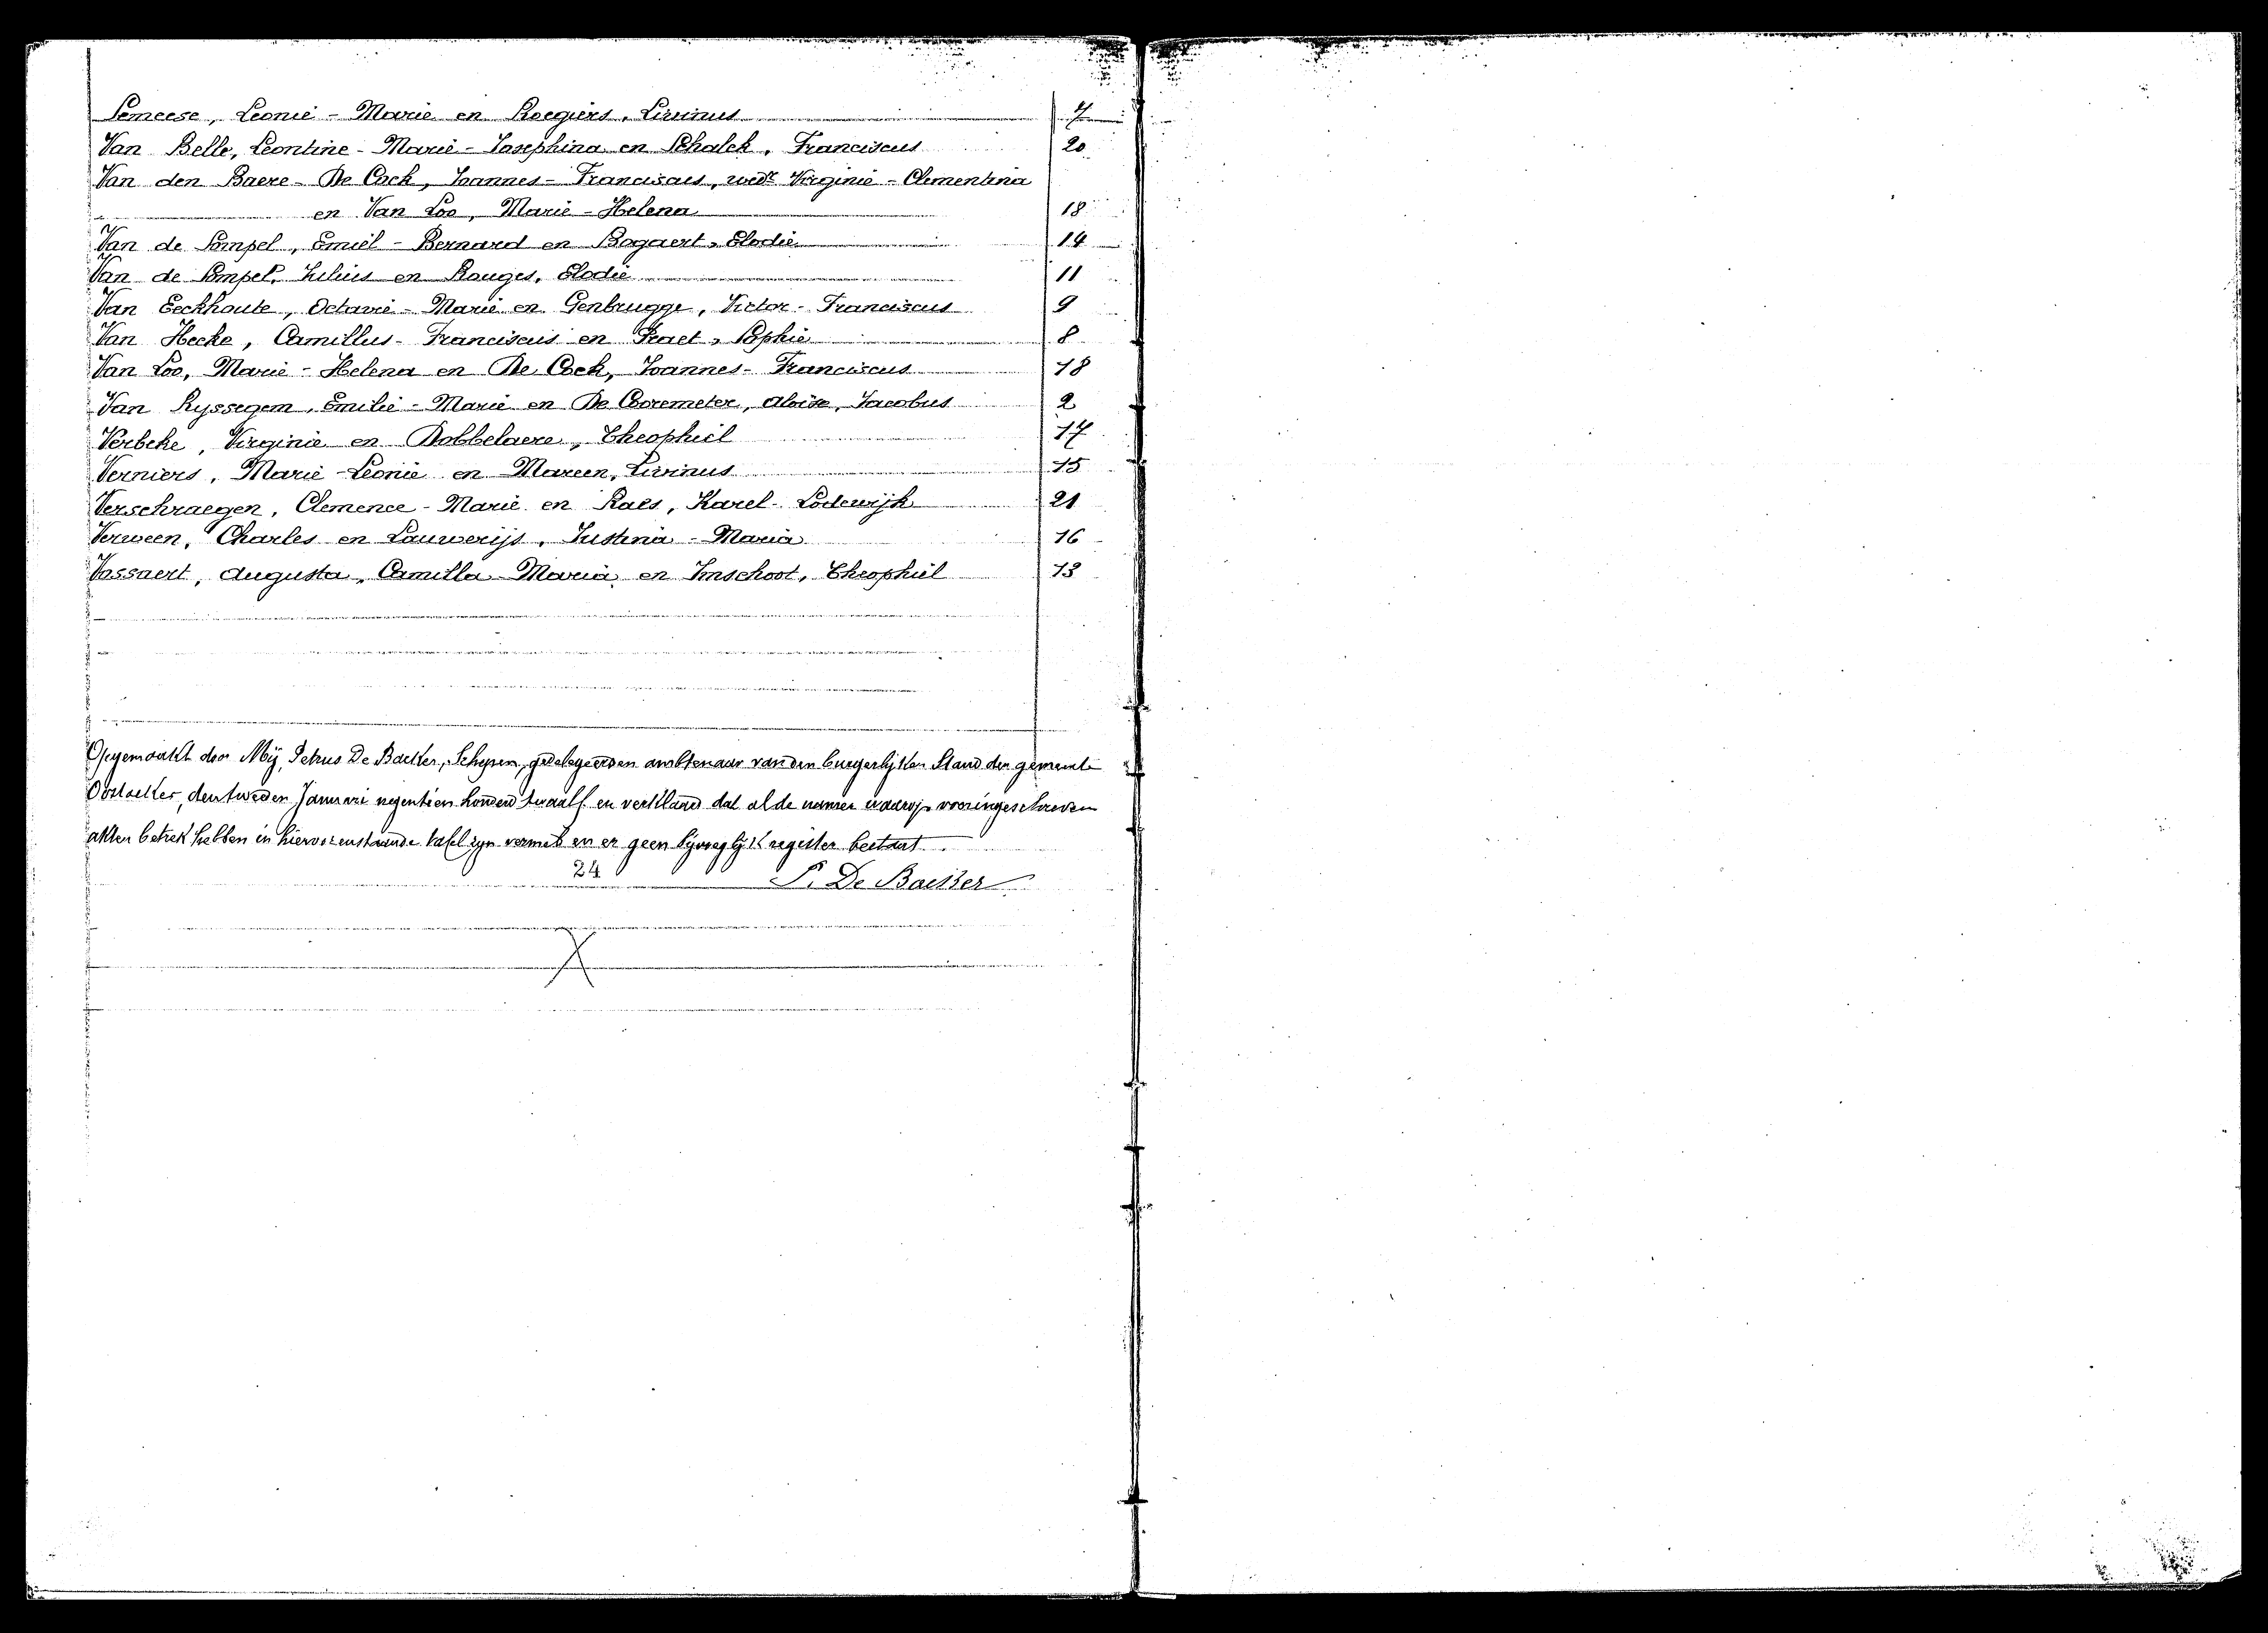 Temeese, Leonie - Marie en Roegiers, Livinus 7
Van Belle, Leontine - Marie - Josephina en Schalck, Franciscus 20
Van den Baere - De Cock, Joannes - Franciscus, wedr Virginie - Clementina
en Van Loo, Marie - Helena 18
Van de Sompel, Emiel - Bernard en Bogaert, Elodie 14
Van de Sompel, Julius en Rouges, Elodie 11
Van Eeckhoute, Octavie - Marie en Genbrugge, Victor - Franciscus 9
Van Hecke, Camillus - Franciscus en Praet, Sophie 8
Van Loo, Marie - Helena en De Cock, Joannes - Franciscus 18
Van Ryssegem, Emilie - Marie en De Cooremeter, Aloise, Jacobus 2
Verbeke, Virginie en Dobbelaere, Theophiel 17
Verniers, Marie - Leonie en Mareen, Livinus 15
Verschraegen, Clemence - Marie en Raes, Karel - Lodewijk 21
Verween, Charles en Lauwerijs, Justina - Maria 16
Vossaert, Augusta, Camilla - Maria en Imschoot, Theophiel 13
Opgemaakt door Mij, Petrus De Backer, Schepen, gedelegeerden ambtenaar van den burgerlijken Stand der gemeente
Oostacker, den tweeden Januari negentien honderd twaalf en verklaard dat al de namen waarop vooringeschreven
akten betrek hebben in hiervorenstaande tafel zyn vermeld en er geen bijvoeglijk register bestaat.
24 P. De Backer